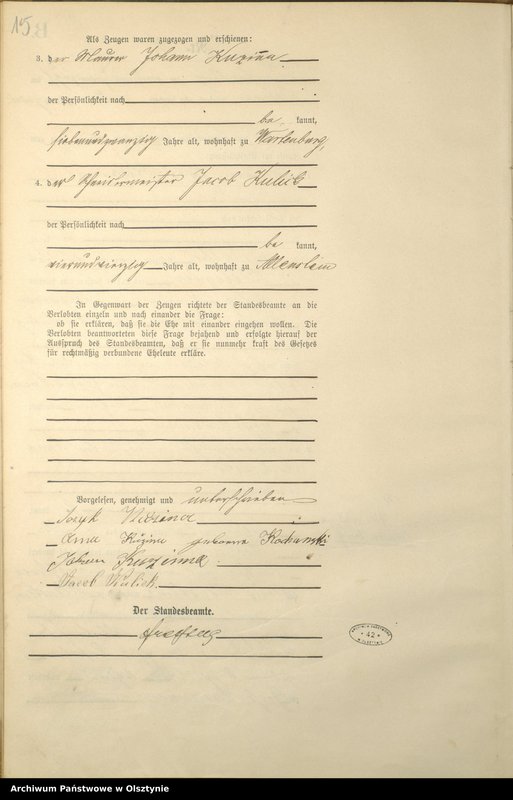 15
Als Zeugen waren zugezogen und erschienen:
3. der Maurer Johann Kuzina
der Persönlichkeit nach
be kannt,
siebenundzwanzig Jahre alt, wohnhaft zu Wartenburg,
4. der Schneidermeister Jacob Kulick
der Persönlichkeit nach
be kannt,
vierundvierzig Jahre alt, wohnhaft zu Allenstein
In Gegenwart der Zeugen richtete der Standesbeamte an die
Verlobten einzeln und nach einander die Frage:
ob sie erklären, daß sie die Ehe mit einander eingehen wollen. Die
Verlobten beantworteten diese Frage bejahend und erfolgte hierauf der
Ausspruch des Standesbeamten, daß er sie nunmehr kraft des Gesetzes
für rechtmäßig verbundene Eheleute erkläre.
Vorgelesen, genehmigt und unterschrieben
Kuzina
Anna geborene
Johann Kuzina
Jacob Kulick.
Der Standesbeamte.
42
Archiwum Państwowe w Olsztynie